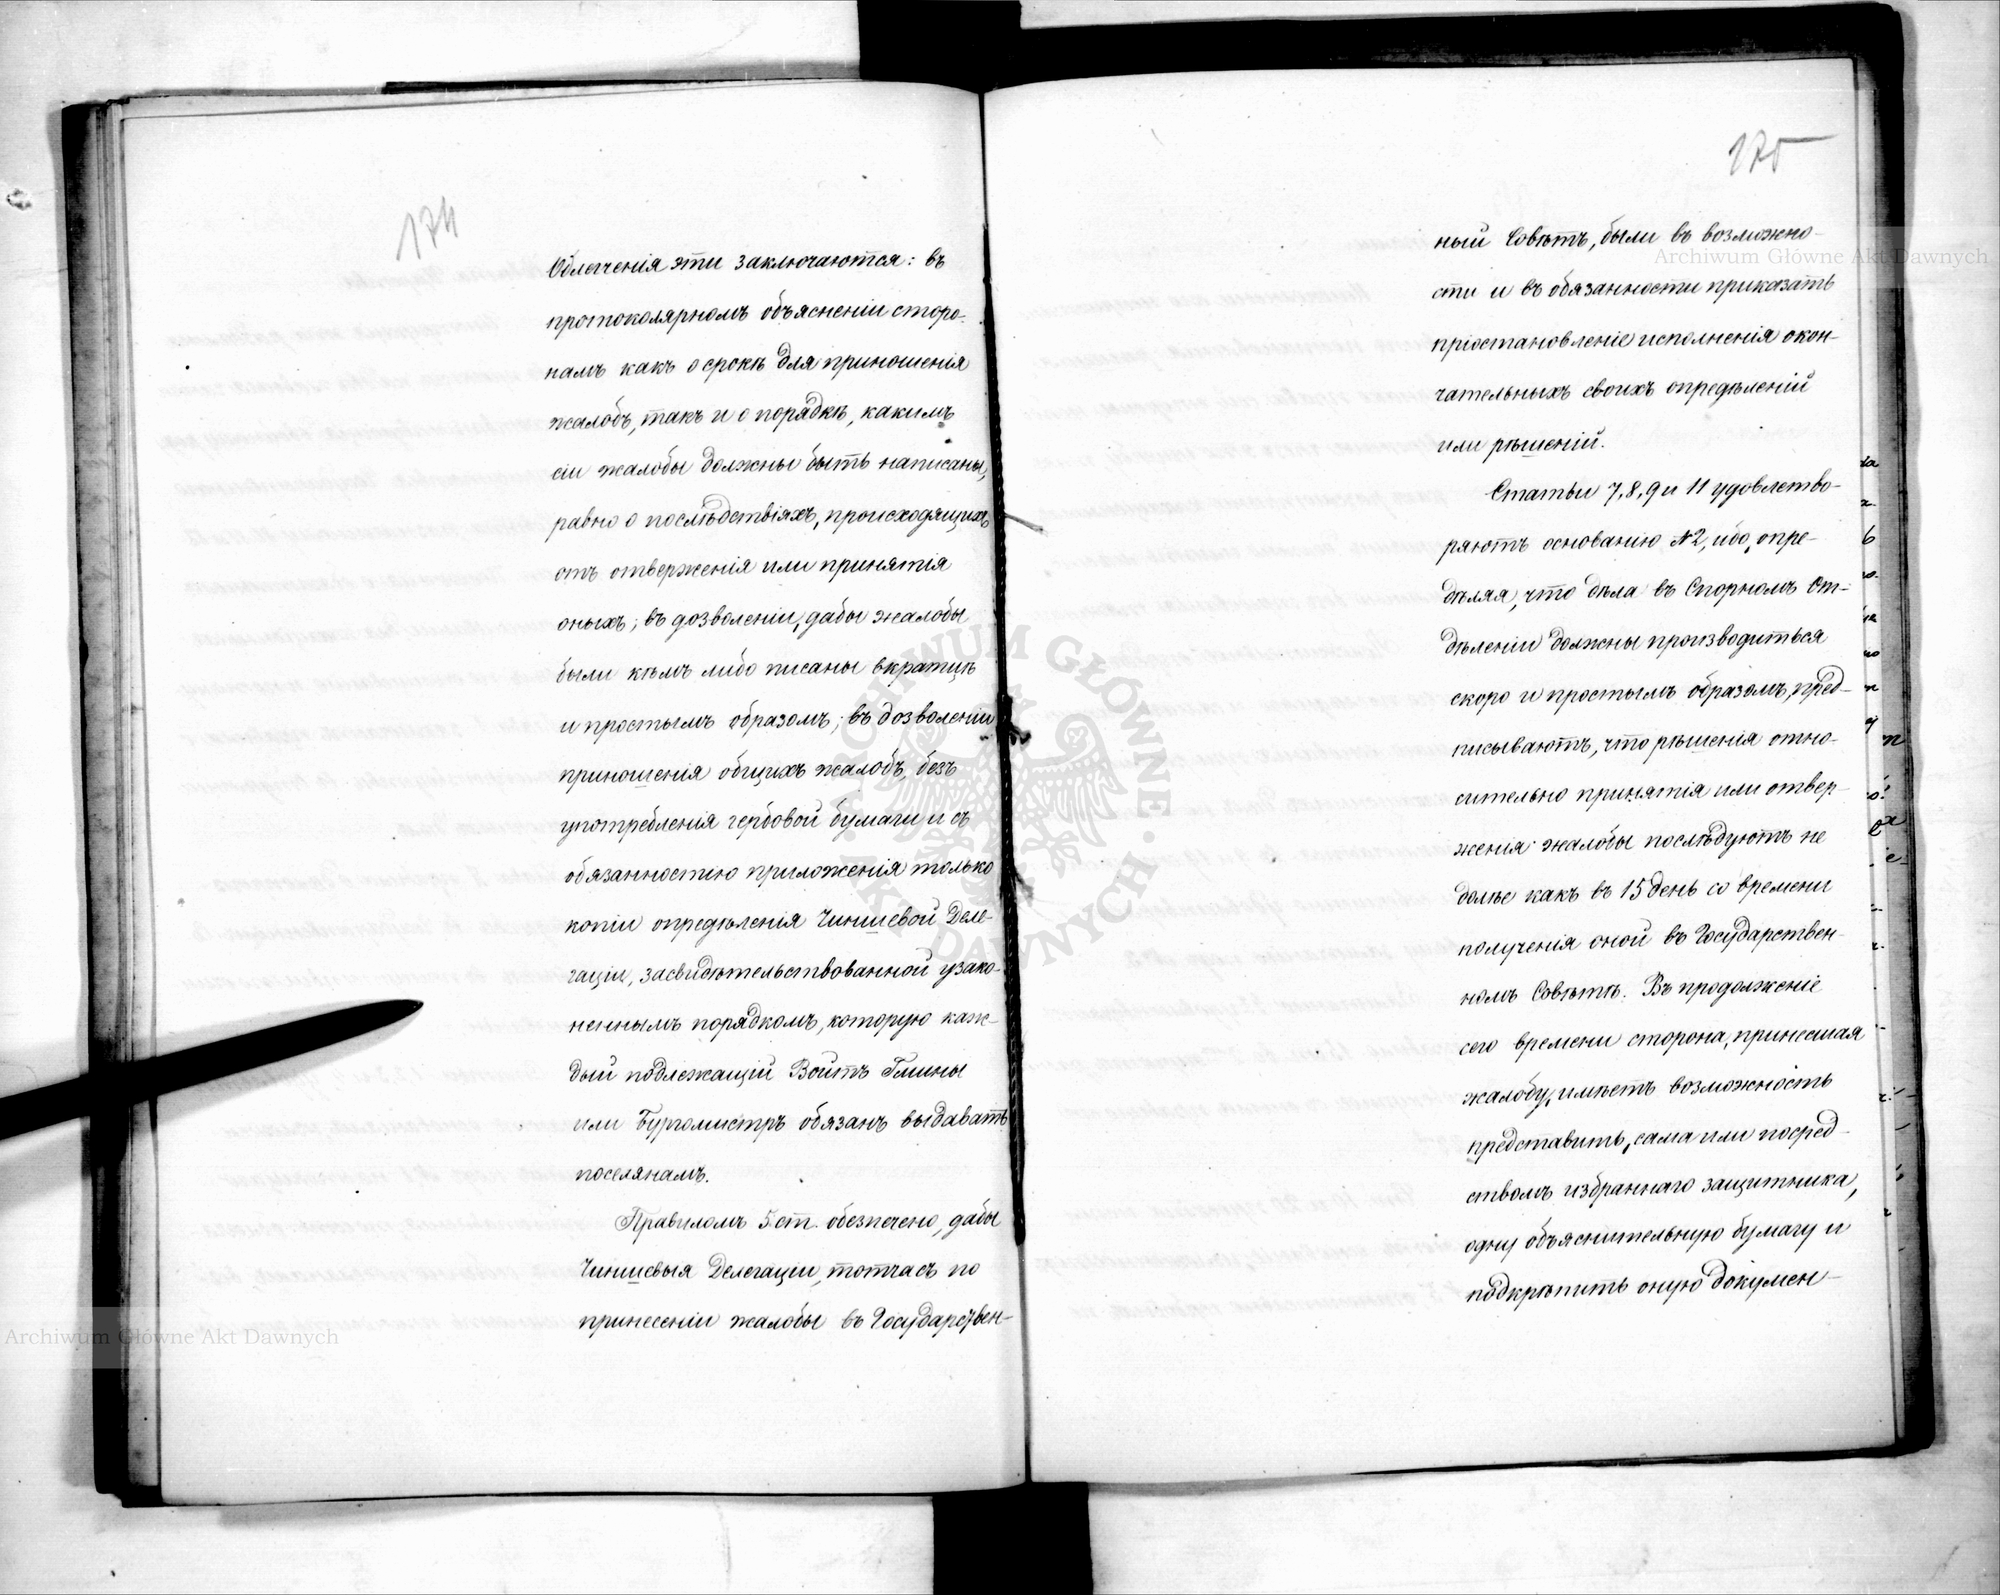 174
Облегченія эти заключаются: въ
протоколярномъ объясненіи сторо-
намъ какъ о срокѣ для приношенія
жалобъ, такъ и о порядкѣ, какимъ
сіи жалобы должны быть написаны,
равно о послѣдствіяхъ, происходящихъ
отъ отверженія или принятія
оныхъ; въ дозволеніи, дабы жалобы
были кѣмъ либо писаны вкратцѣ
и простымъ образомъ; въ дозволеніи
приношенія общихъ жалобъ, безъ
употребленія гербовой бумаги и съ
обязанностію приложенія только
копіи опредѣленія Чиншевой Деле-
гаціи, засвидѣтельствованной узако-
неннымъ порядкомъ, которую каж-
дый подлежащій Войтъ Гмины
или Бургомистръ обязанъ выдавать
поселянамъ.
Правиломъ 5 ст. обезпечено, дабы
Чиншевыя Делегаціи, тотчасъ по
принесеніи жалобы въ Государствен-
175
ный Совѣтъ, были въ возможно-
сти и въ обязанности приказать
пріостановленіе исполненія окон-
чательныхъ своихъ опредѣленій
или рѣшеній.
Статьи 7, 8, 9 и 11 удовлетво-
ряютъ основанію №2, ибо, опре-
дѣляя, что дѣла въ Спорномъ От-
дѣленіи должны производиться
скоро и простымъ образомъ, пред-
писываютъ, что рѣшенія отно-
сительно принятія или отвер-
женія жалобы послѣдуютъ не
долѣе какъ въ 15 день со времени
полученія оной въ Государствен-
номъ Совѣтѣ. Въ продолженіе
сего времени сторона, принесшая
жалобу, имѣетъ возможность
представить, сама или посред-
ствомъ избраннаго защитника,
одну объяснительную бумагу и
подкрѣпить оную докумен-
Archiwum Główne Akt Dawnych
Archiwum Główne Akt Dawnych
ARCHIWUM GŁÓWNE AKT DAWNYCH